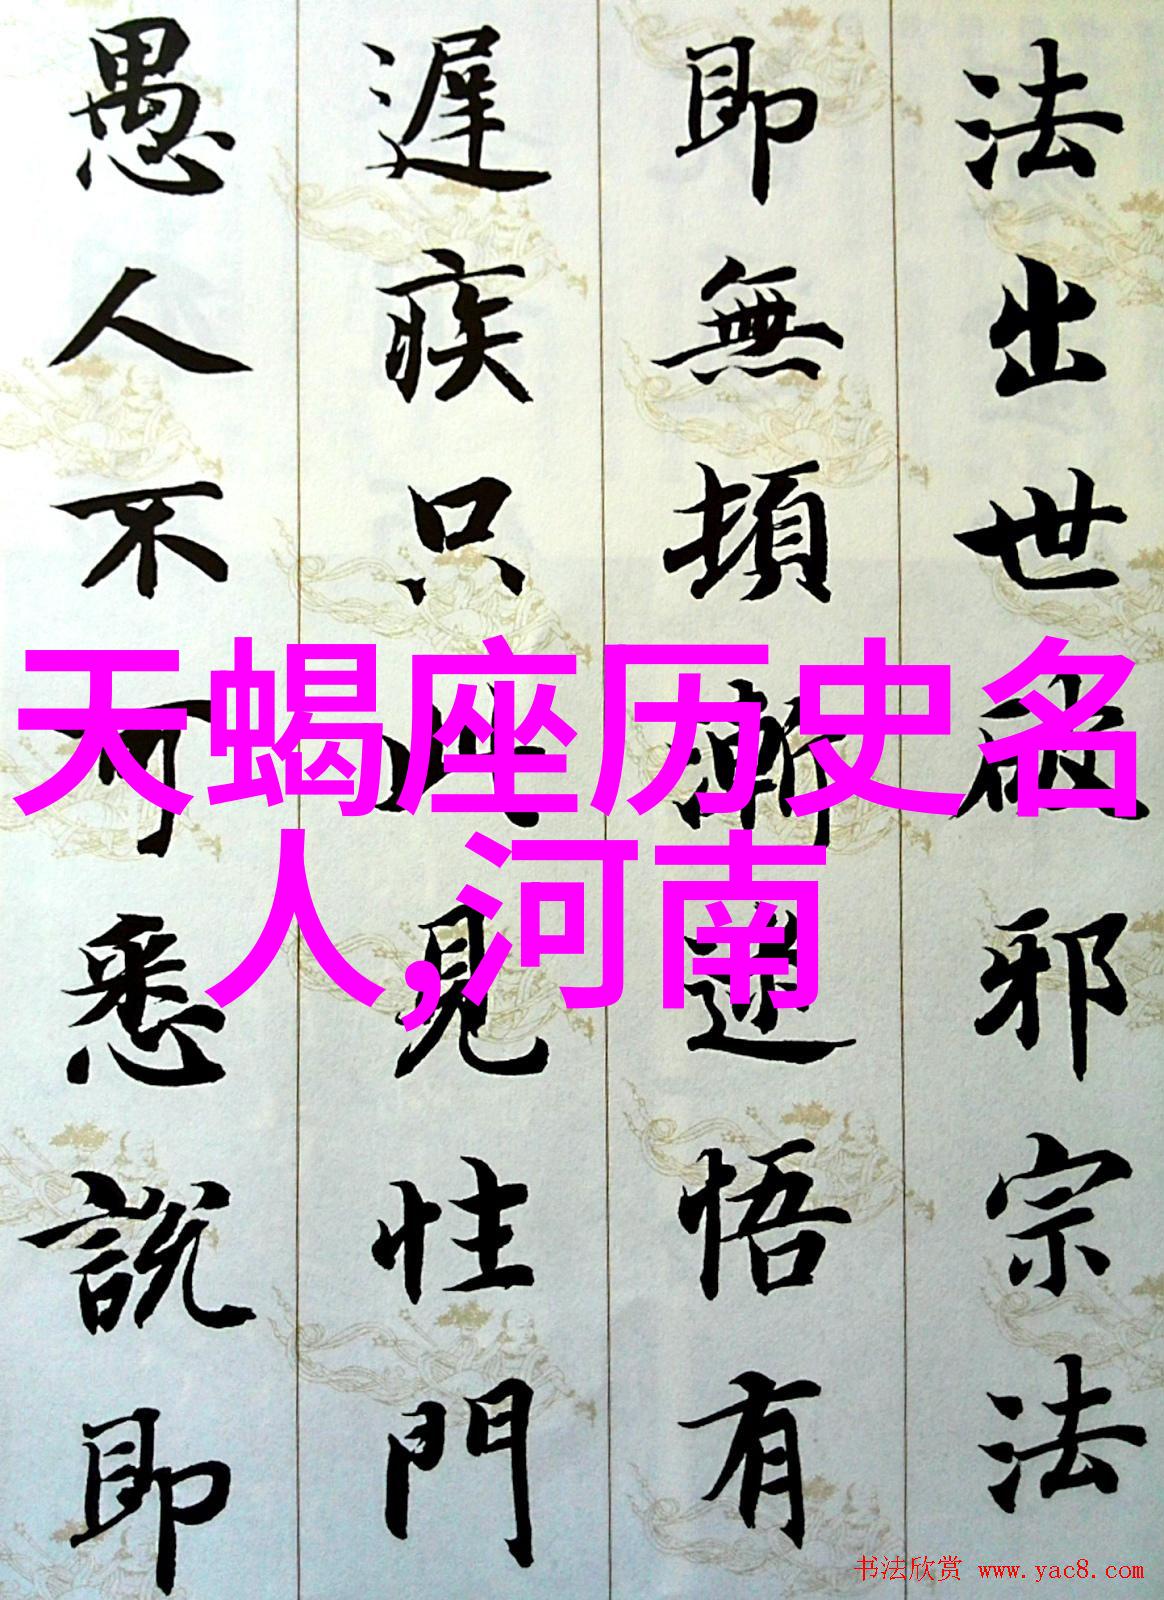 法出世破邪宗法
即無頓漸迷悟有
遲疾只此見性門
愚人不可悉說即
天蝎座历史名
人,河南
书法欣赏 www.yac8.com